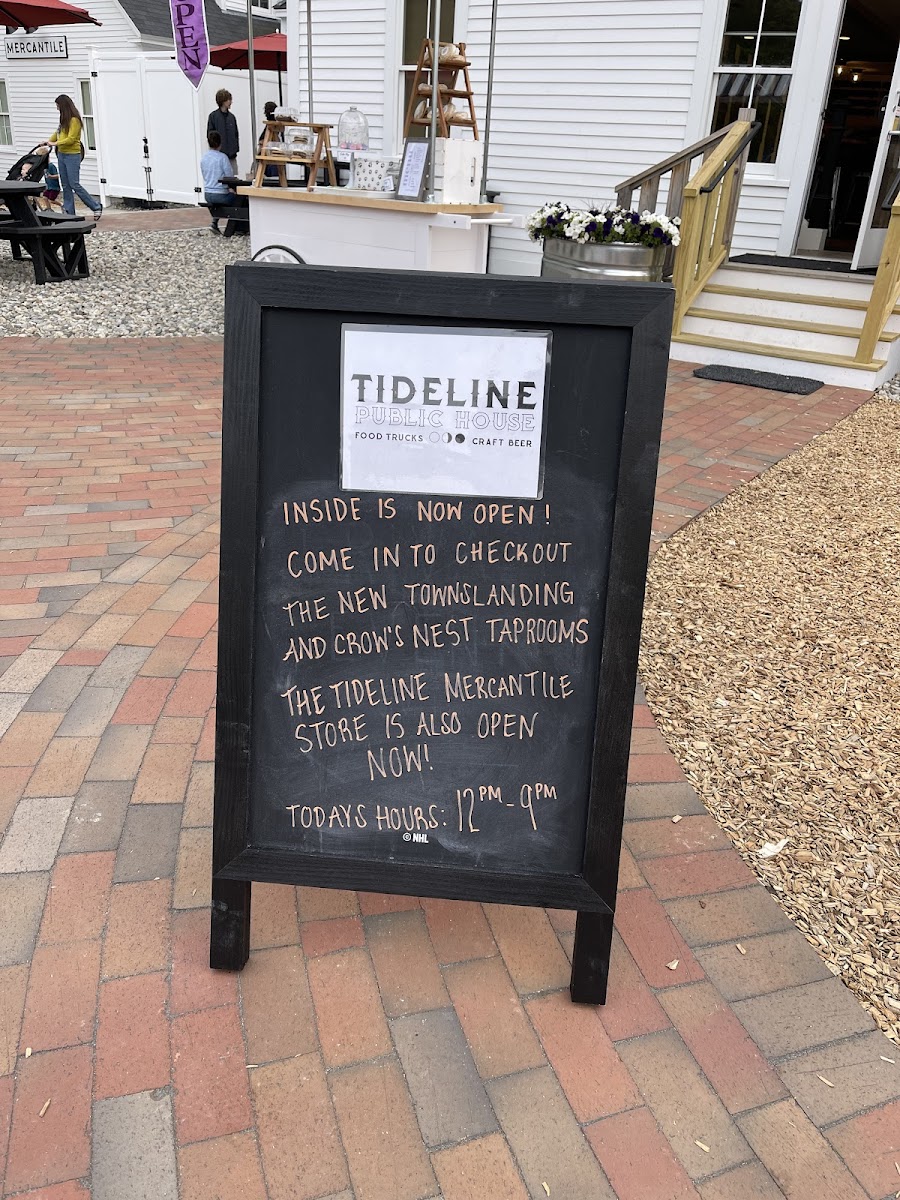 MERCANTILE
OPEN
TIDELINE
PUBLIC HOUSE
FOOD TRUCKS CRAFT BEER
INSIDE IS NOW OPEN!
COME IN TO CHECKOUT
THE NEW TOWNSLANDING
AND CROW'S NEST TAPROOMS
THE TIDELINE MERCANTILE
STORE IS ALSO OPEN
NOW!
TODAYS HOURS: 12PM-9PM
© NHL